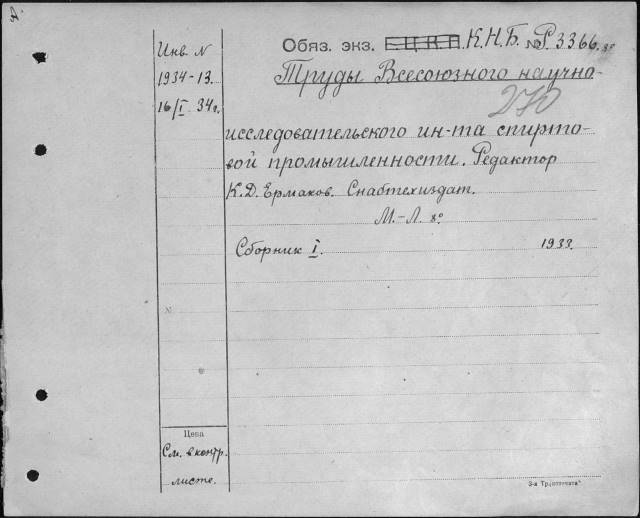 Инв. N
1934-13.
16/I 34г.
Обяз. экз. Е.Ц.К.Н. К.Н.Б. № Р.3366. 8°
Труды Всесоюзного научно-
270
исследовательского ин-та спирто-
вой промышленности. Редактор
К.Д. Ермаков. Снабтехиздат.
М.-Л. 8°
Сборник I. 1933.
N
Цена
См. в контр.
листе.